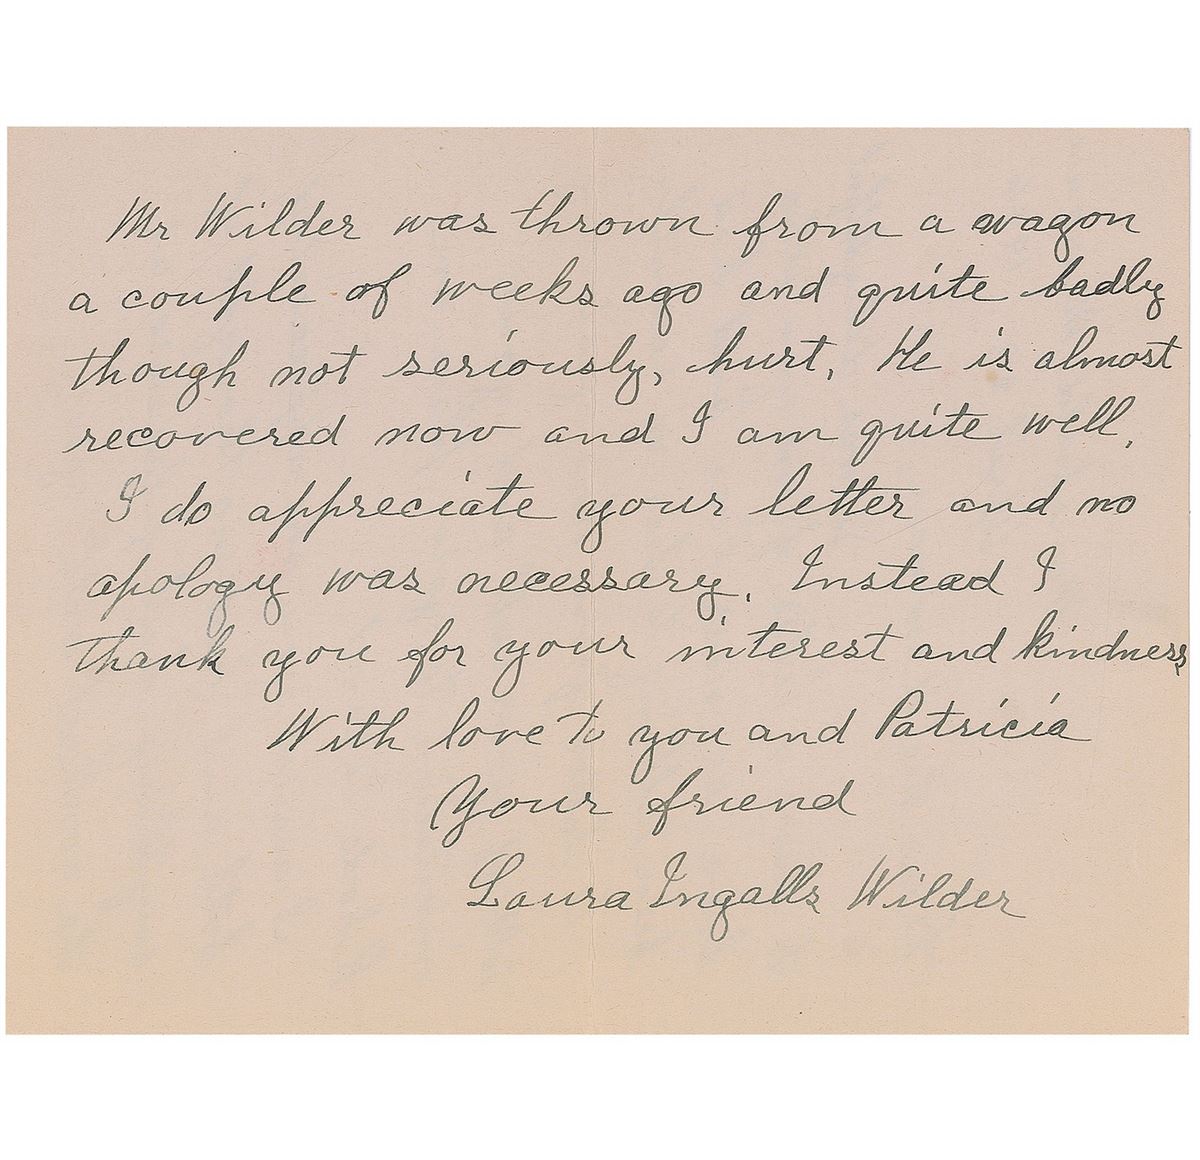 Mr Wilder was thrown from a wagon
a couple of weeks ago and quite badly
though not seriously, hurt. He is almost
recovered now and I am quite well.
I do appreciate your letter and no
apology was necessary. Instead I
thank you for your interest and kindness
With love to you and Patricia
Your friend
Laura Ingalls Wilder